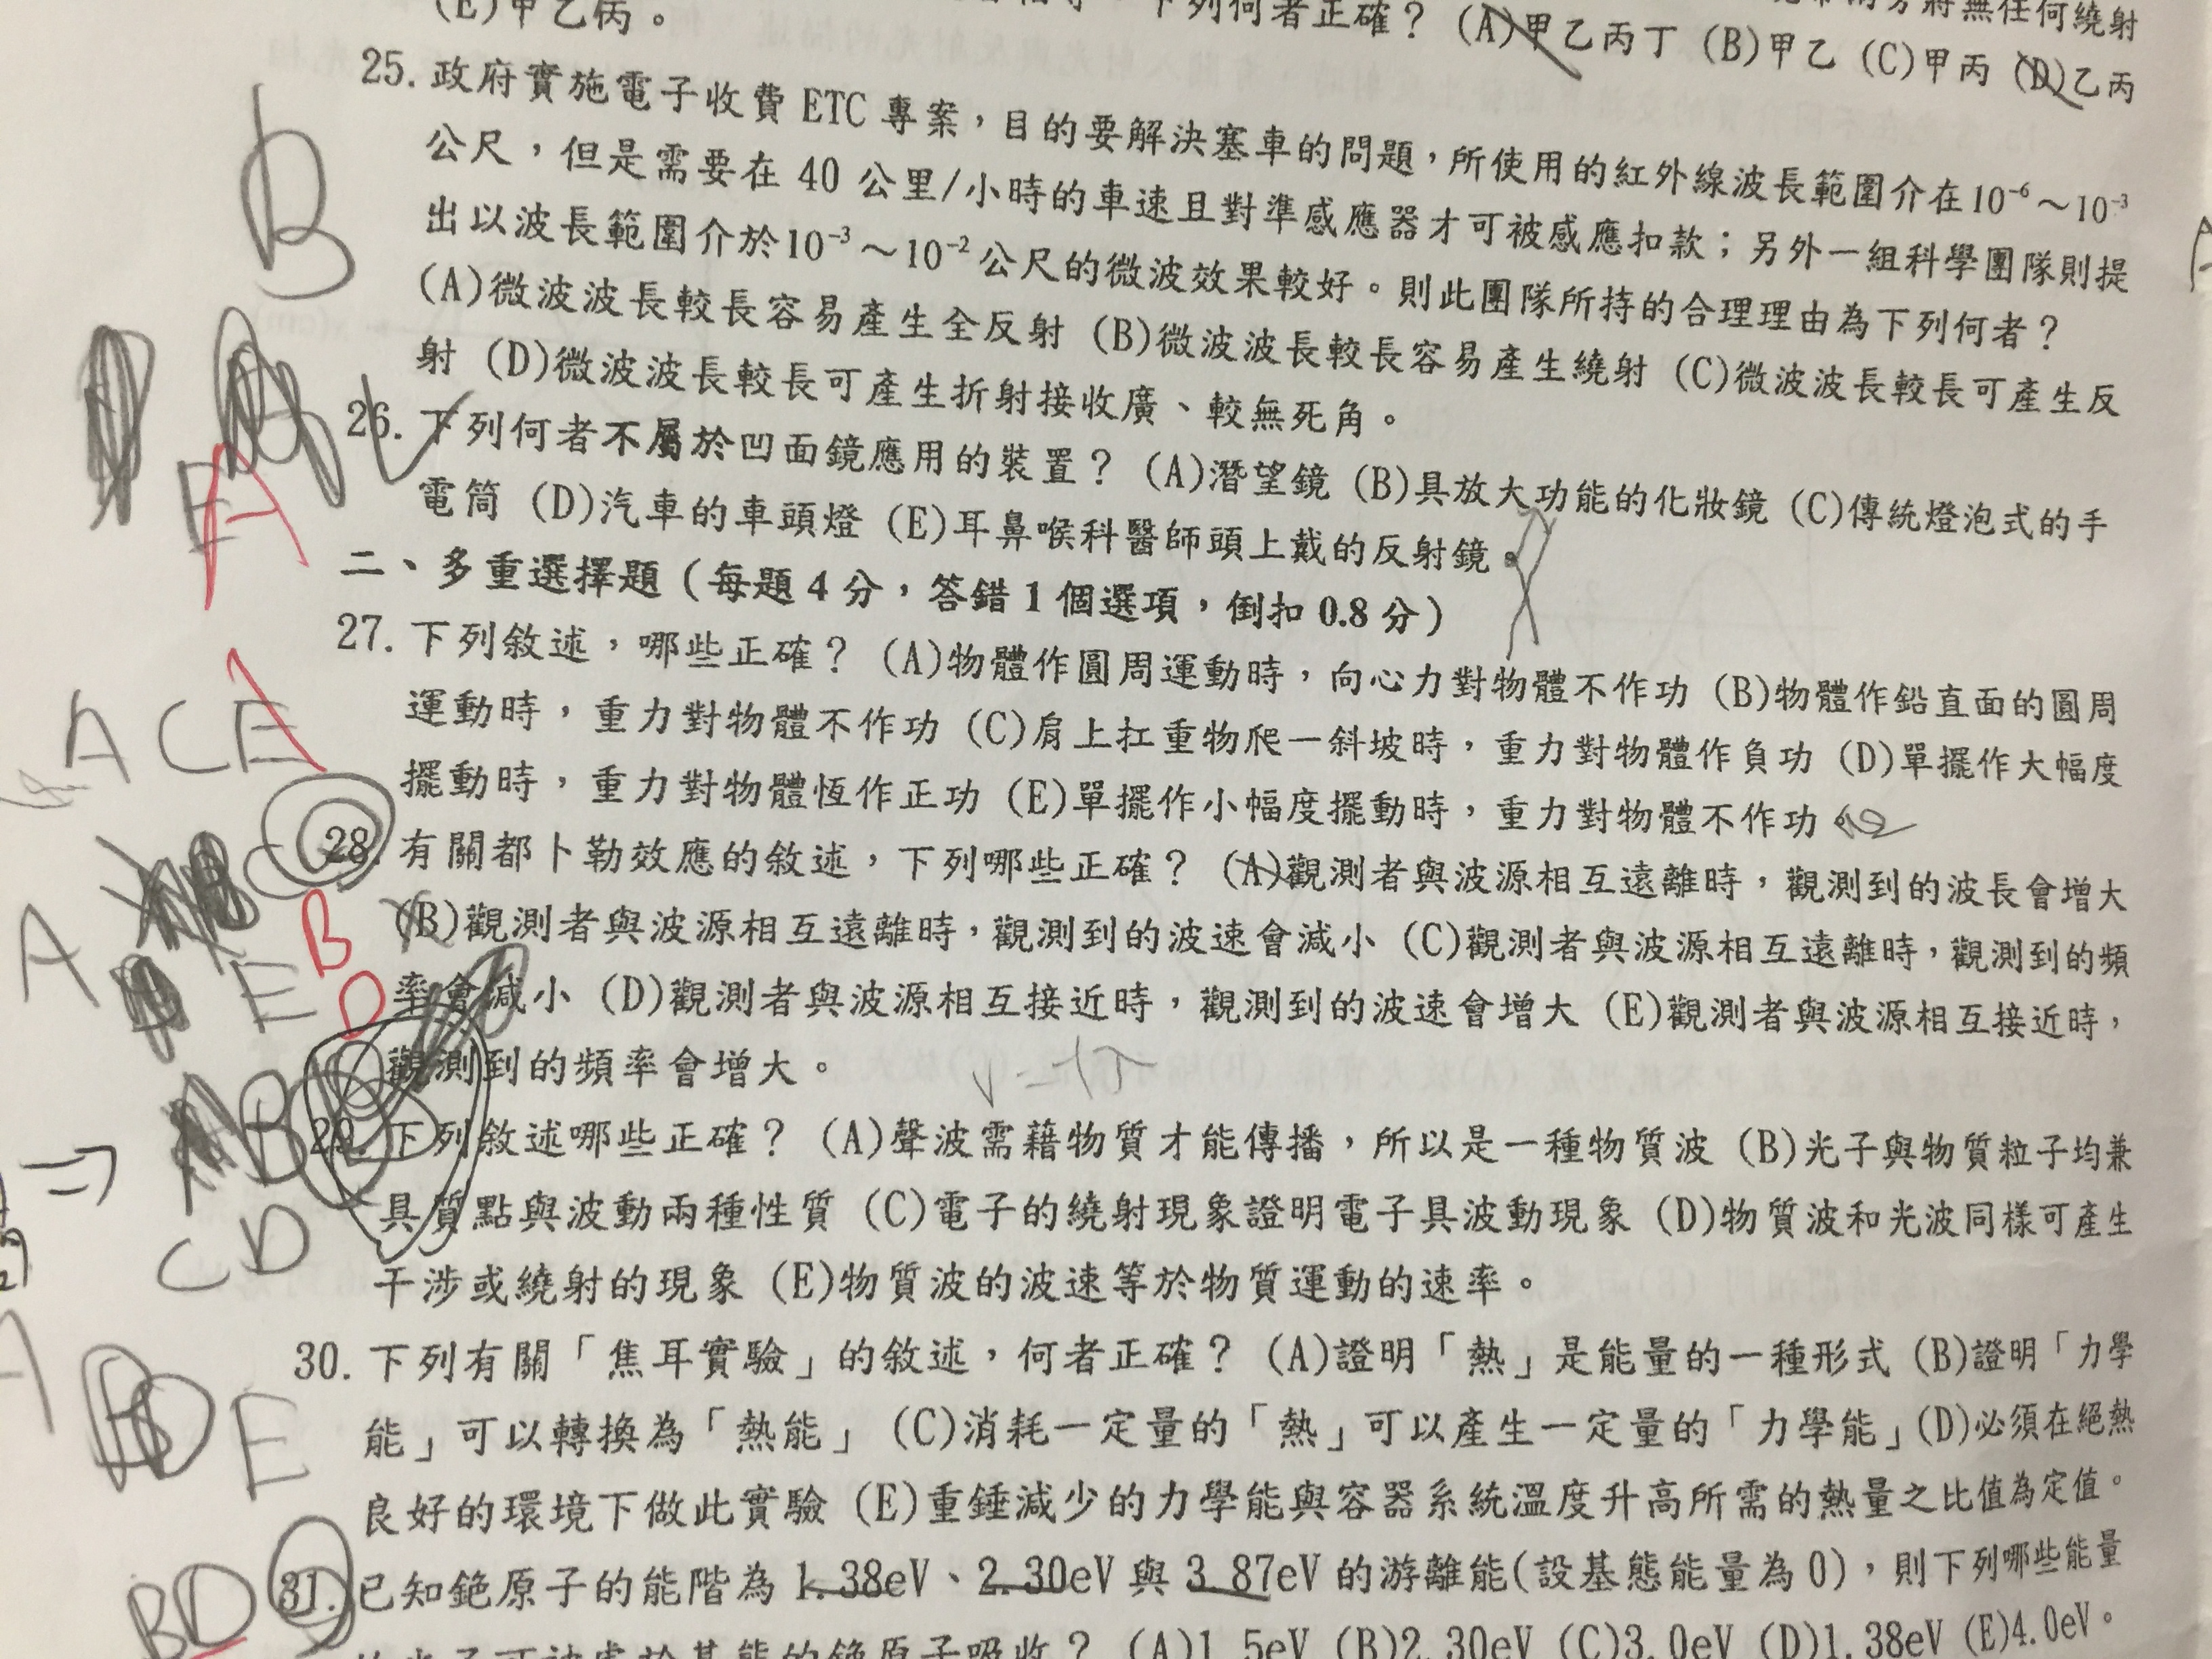 (E)甲乙丙。
下列何者正確？ (A)甲乙丙丁 (B)甲乙 (C)甲丙 (D)乙丙
25. 政府實施電子收費 ETC 專案，目的要解決塞車的問題，所使用的紅外線波長範圍介在10⁻⁶～10⁻³
公尺，但是需要在 40 公里/小時的車速且對準感應器才可被感應扣款；另外一組科學團隊則提
出以波長範圍介於10⁻³～10⁻²公尺的微波效果較好。則此團隊所持的合理理由為下列何者？
(A)微波波長較長容易產生全反射 (B)微波波長較長容易產生繞射 (C)微波波長較長可產生反
射 (D)微波波長較長可產生折射接收廣、較無死角。
B
26. 下列何者不屬於凹面鏡應用的裝置？ (A)潛望鏡 (B)具放大功能的化妝鏡 (C)傳統燈泡式的手
電筒 (D)汽車的車頭燈 (E)耳鼻喉科醫師頭上戴的反射鏡。
E A
二、多重選擇題（每題 4 分，答錯 1 個選項，倒扣 0.8 分）
27. 下列敘述，哪些正確？ (A)物體作圓周運動時，向心力對物體不作功 (B)物體作鉛直面的圓周
運動時，重力對物體不作功 (C)肩上扛重物爬一斜坡時，重力對物體作負功 (D)單擺作大幅度
擺動時，重力對物體恆作正功 (E)單擺作小幅度擺動時，重力對物體不作功
A C E
28. 有關都卜勒效應的敘述，下列哪些正確？ (A)觀測者與波源相互遠離時，觀測到的波長會增大
(B)觀測者與波源相互遠離時，觀測到的波速會減小 (C)觀測者與波源相互遠離時，觀測到的頻
率會減小 (D)觀測者與波源相互接近時，觀測到的波速會增大 (E)觀測者與波源相互接近時，
觀測到的頻率會增大。
A C E
B
D
29. 下列敘述哪些正確？ (A)聲波需藉物質才能傳播，所以是一種物質波 (B)光子與物質粒子均兼
具質點與波動兩種性質 (C)電子的繞射現象證明電子具波動現象 (D)物質波和光波同樣可產生
干涉或繞射的現象 (E)物質波的波速等於物質運動的速率。
B
C D
30. 下列有關「焦耳實驗」的敘述，何者正確？ (A)證明「熱」是能量的一種形式 (B)證明「力學
能」可以轉換為「熱能」 (C)消耗一定量的「熱」可以產生一定量的「力學能」(D)必須在絕熱
良好的環境下做此實驗 (E)重錘減少的力學能與容器系統溫度升高所需的熱量之比值為定值。
A
D E
31. 已知銫原子的能階為 1.38eV、2.30eV 與 3.87eV 的游離能(設基態能量為 0)，則下列哪些能量
的光子可被處於基態的銫原子吸收？ (A)1.5eV (B)2.30eV (C)3.0eV (D)1.38eV (E)4.0eV。
BD